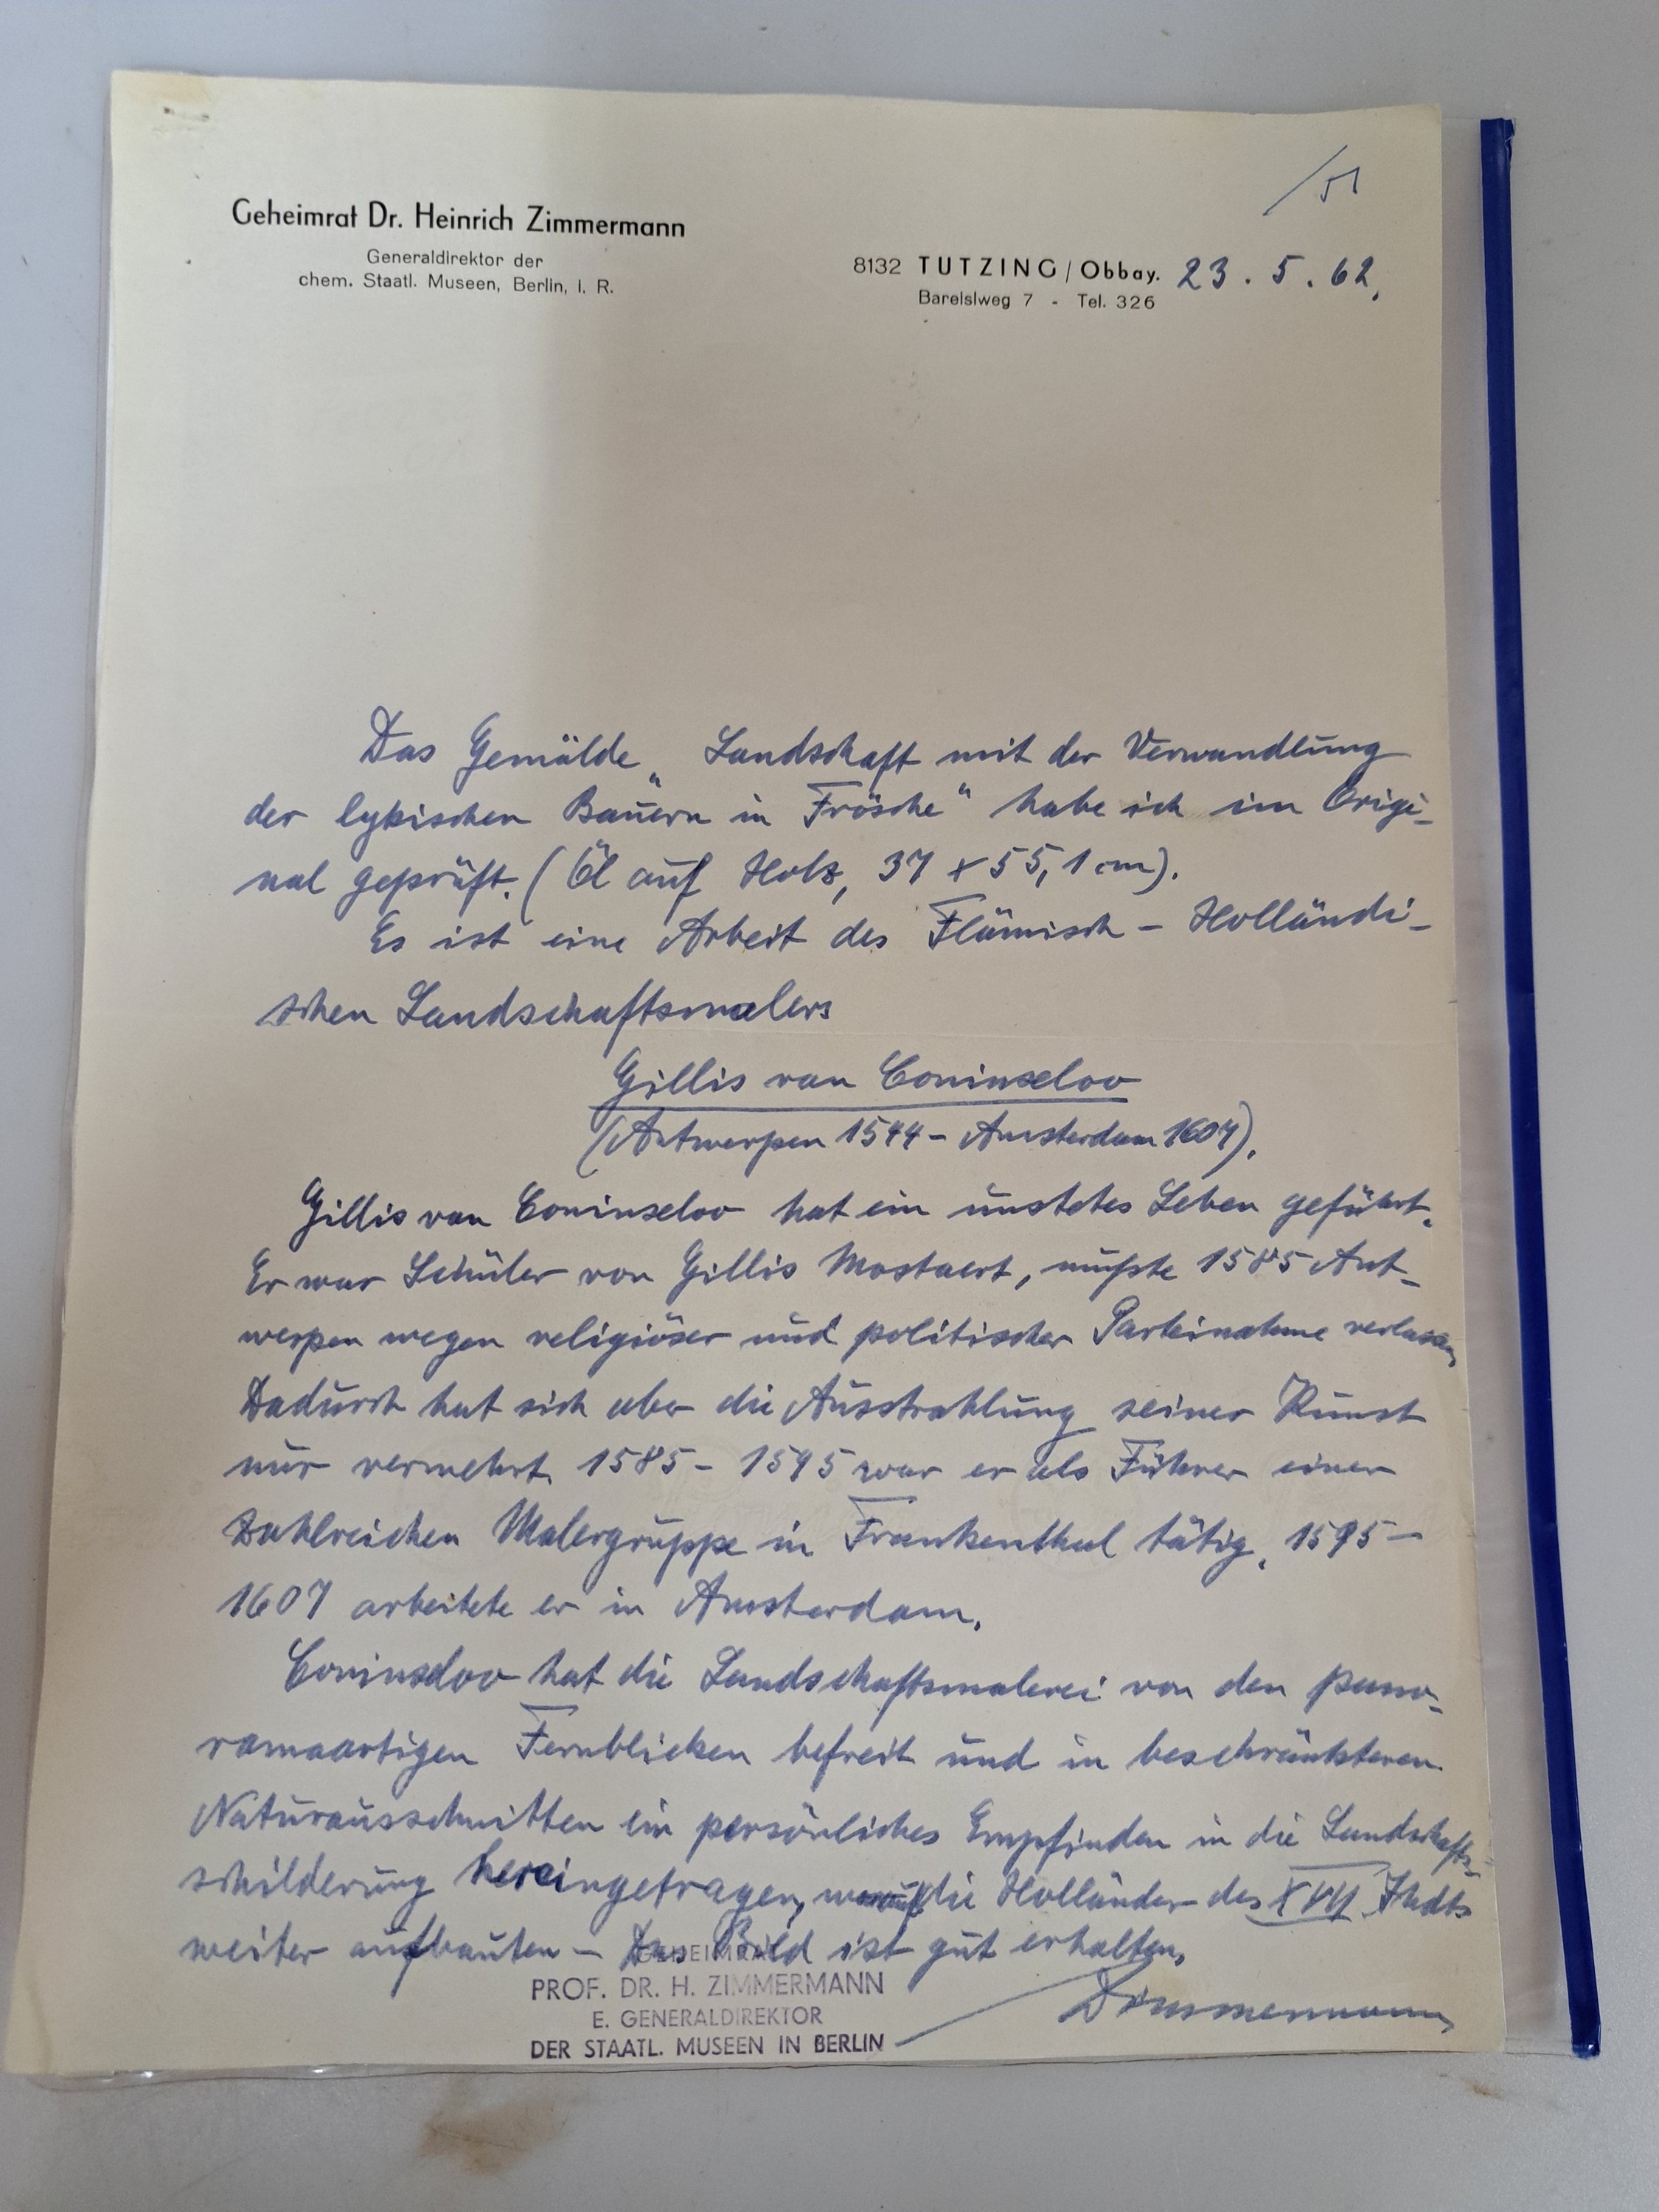 Geheimrat Dr. Heinrich Zimmermann
Generaldirektor der
chem. Staatl. Museen, Berlin, I. R.
8132 TUTZING / Obbay. 23. 5. 62.
Barelslweg 7 - Tel. 326
Das Gemälde „Landschaft mit der Verwandlung
der lykischen Bauern in Frösche“ habe ich im Origi-
nal geprüft. (Öl auf Holz, 37 x 55,1 cm).
Es ist eine Arbeit des Flämisch - Holländi-
schen Landschaftsmalers
Gillis van Coninxloo
(Antwerpen 1544 - Amsterdam 1607).
Gillis van Coninxloo hat ein unstetes Leben geführt.
Er war Schüler von Gillis Mostaert, mußte 1585 Ant-
werpen wegen religiöser und politischer Parteinahme verlassen,
Dadurch hat sich aber die Ausstrahlung seiner Kunst
nur vermehrt. 1585 - 1595 war er als Führer einer
zahlreichen Malergruppe in Frankenthal tätig, 1595 -
1607 arbeitete er in Amsterdam.
Coninxloo hat die Landschaftsmalerei von den pano-
ramaartigen Fernblicken befreit und in beschränkteren
Naturausschnitten ein persönliches Empfinden in die Landschafts-
schilderung hereingetragen, worauf die Holländer des XVII. Jhdts
weiter aufbauten - Das Bild ist gut erhalten.
Zimmermann
GEHEIMRAT
PROF. DR. H. ZIMMERMANN
E. GENERALDIREKTOR
DER STAATL. MUSEEN IN BERLIN